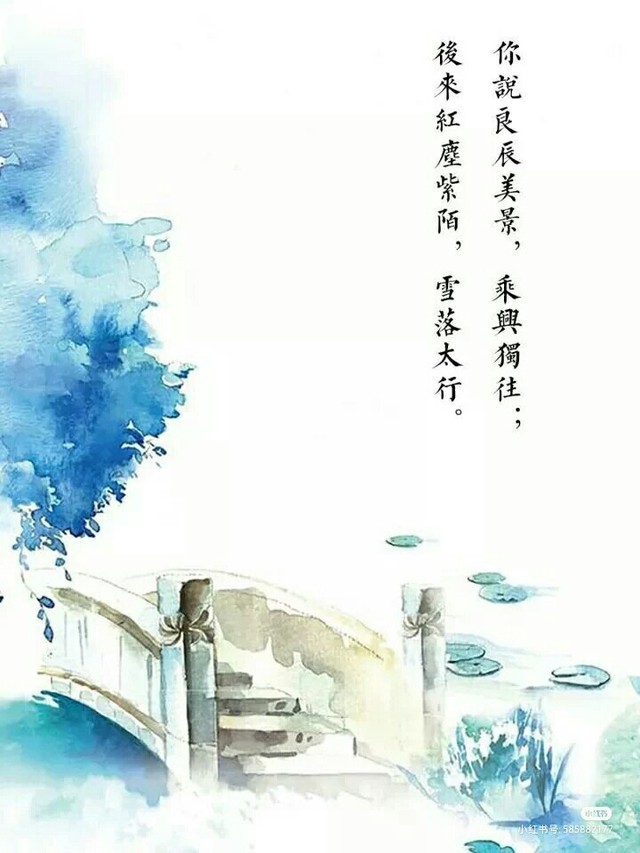 你說良辰美景，乘興獨往；
後來紅塵紫陌，雪落太行。
小红书
小红书号: 585882177